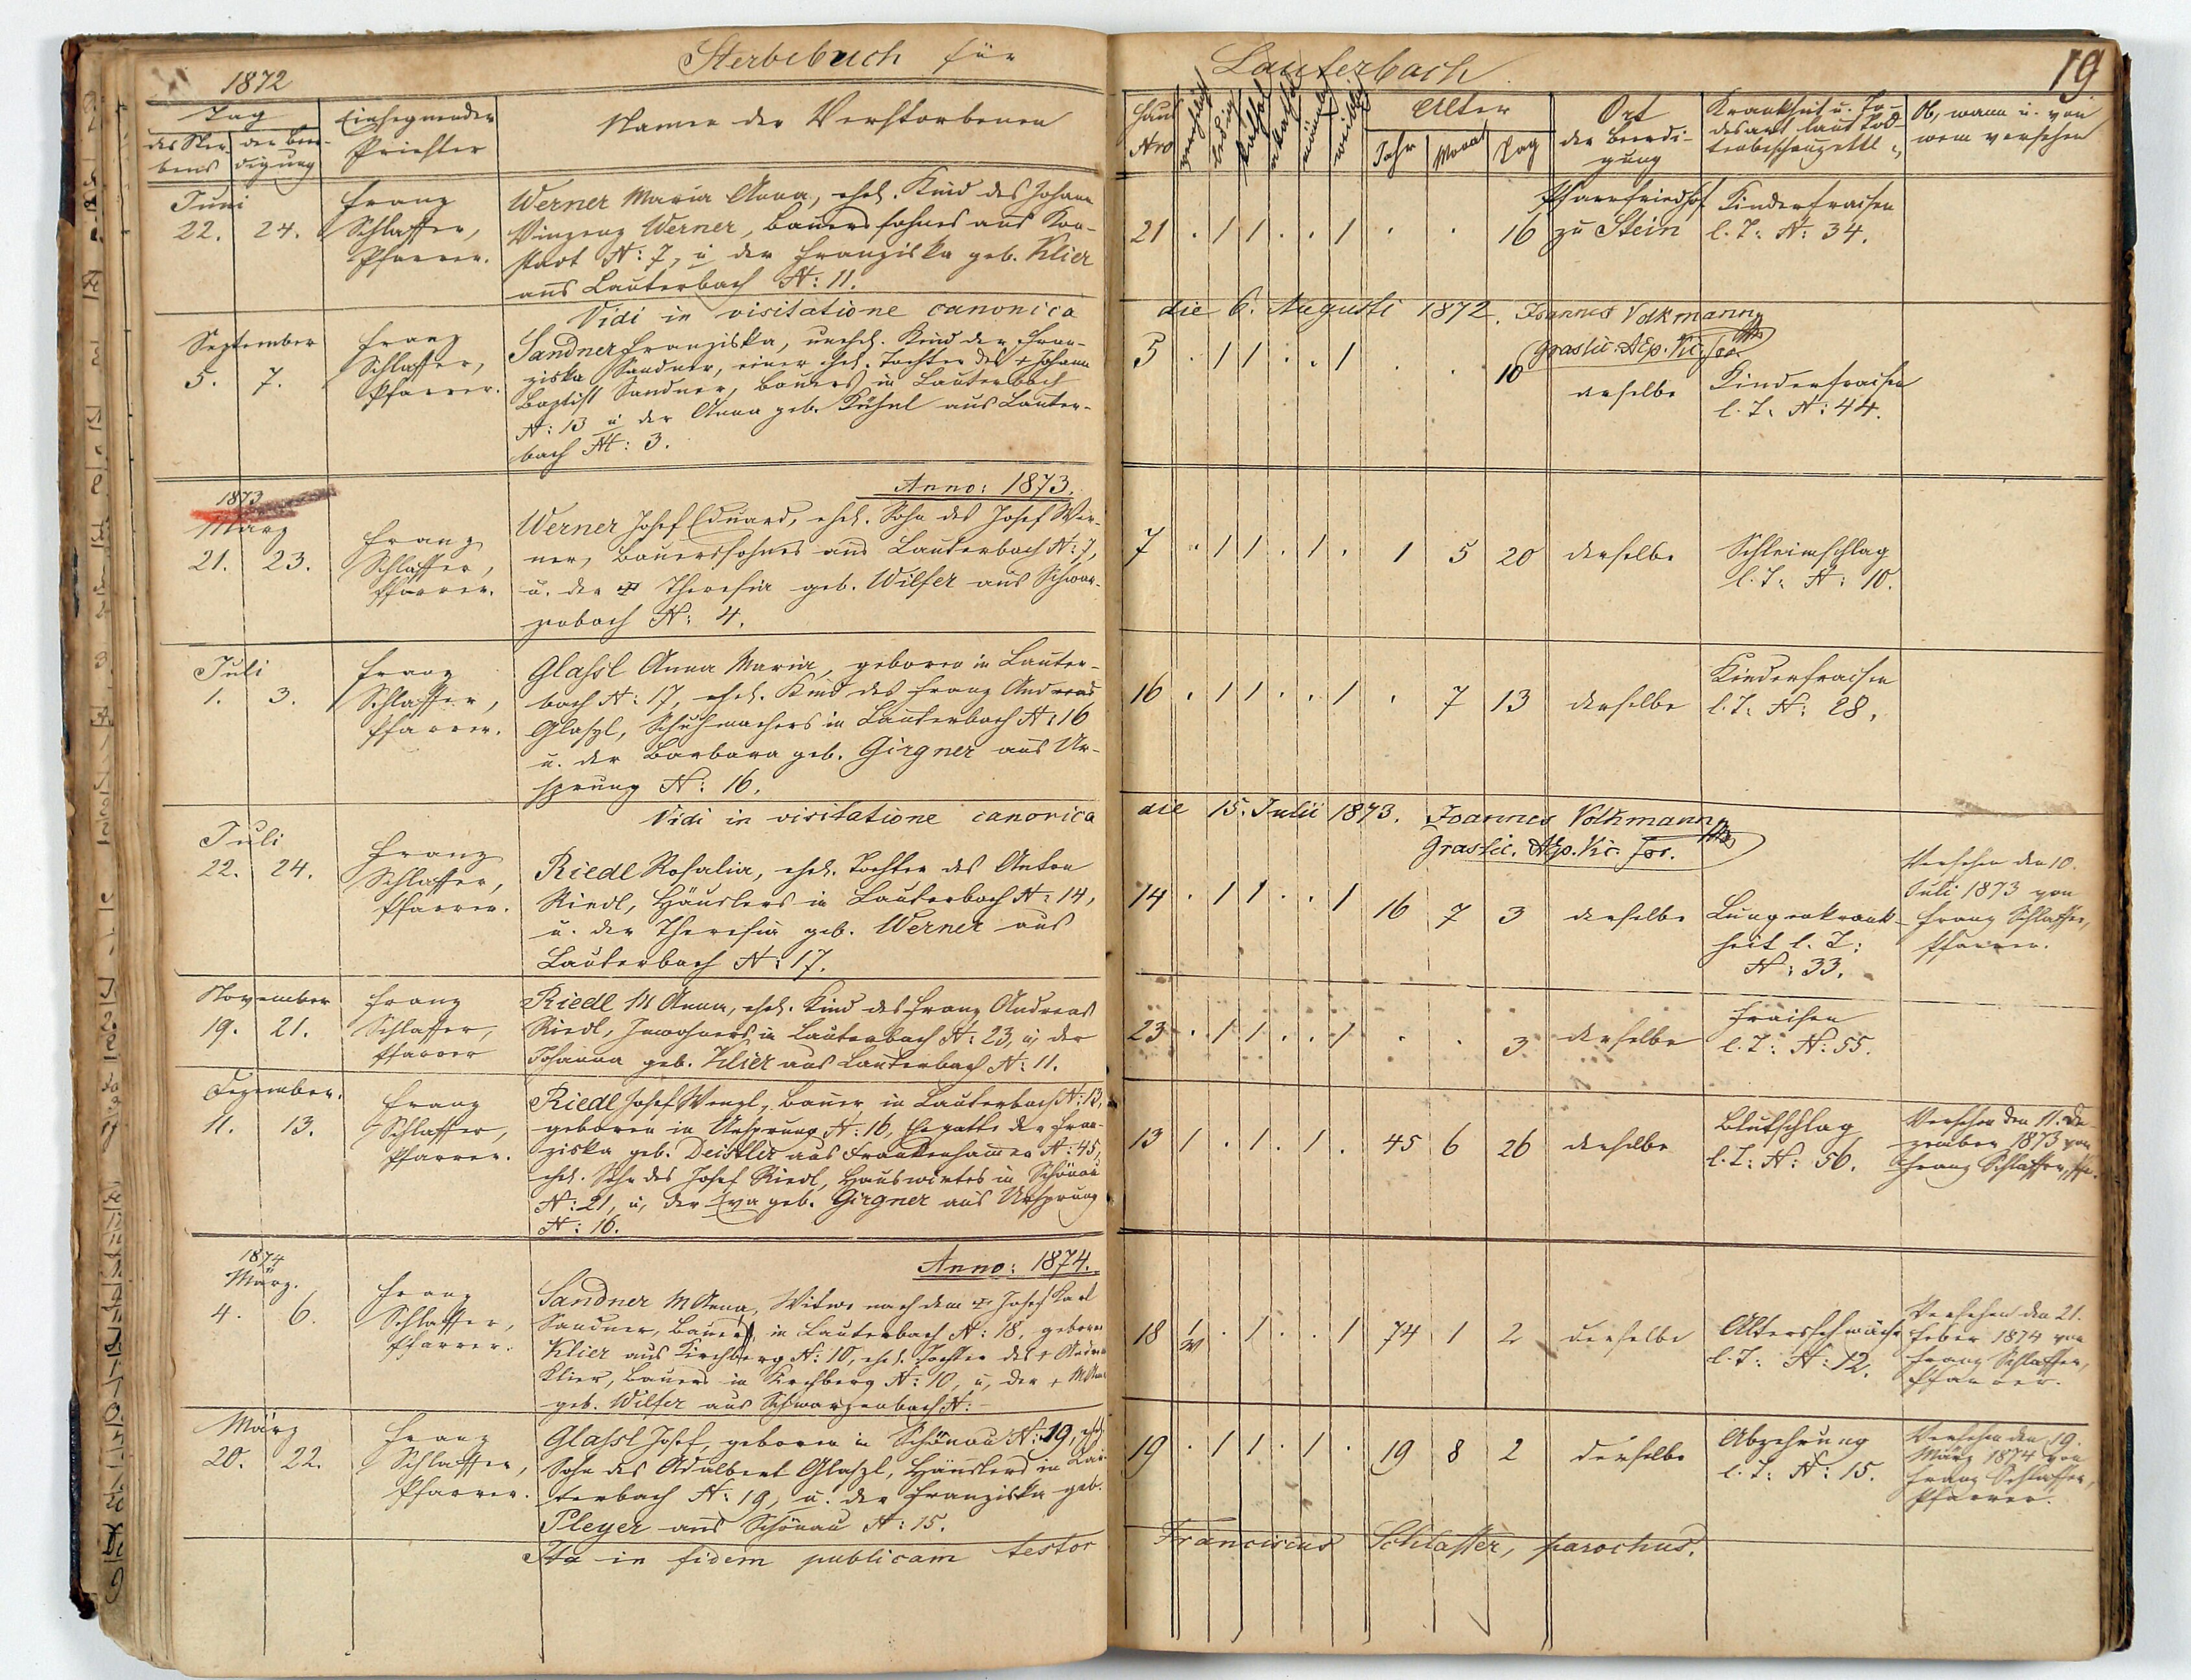 Sterbebuch für Lauterbach 19
1872
Tag
des Ster-
bens
der Beer-
digung
Einsegnender
Priester
Namen des Verstorbenen
Haus
Nro
männlich
weiblich
Alter
Jahr Monat Tag
Ort
der Beerdi-
gung
Krankheit u. To-
desart laut Tod-
tenbeschauzettl
Ob, wann u. von
wem versehen
Juni
22. 24.
Franz
Schlaffer,
Pfarrer.
Werner Maria Anna, ehel. Kind des Johann
Vinzenz Werner, Bauerssohnes aus Kon-
stadt N: 7, u der Franziska geb. Klier
aus Lauterbach N: 11.
21 . 1 1 . . 1 . . 16
Pfarrfriedhof
zu Stein
Kinderfraisen
l. Z. N: 34.
Vidi in visitatione canonica die 6. Augusti 1872. Joannes Volkmann
Graslic. AEp. Vic. For.
September
5. 7.
Franz
Schlaffer,
Pfarrer.
Sandner Franziska, unehel. Kind der Fran-
ziska Sandner, einer ehel. Tochter des + Johann
Baptist Sandner, Bauers in Lauterbach
N: 13 u der Anna geb. Kühnl aus Lauter-
bach N: 3.
5 . 1 1 . . 1 . . 10
derselbe
Kinderfraisen
l. Z. N: 44.
Anno: 1873.
1873
März
21. 23.
Franz
Schlaffer,
Pfarrer.
Werner Josef Eduard, ehel. Sohn des Josef Wer-
ner, Bauerssohnes aus Lauterbach N: 7,
u. der Theresia geb. Wilfer aus Schwar-
zenbach N: 4.
7 . 1 1 . 1 . 1 5 20
derselbe
Schleimschlag
l. Z: N: 10.
Juli
1. 3.
Franz
Schlaffer,
Pfarrer.
Glassl Anna Maria, geboren in Lauter-
bach N: 17, ehel. Kind des Franz Andreas
Glaszl, Schuhmachers in Lauterbach N: 16
u. der Barbara geb. Girgner aus Ur-
sprung N: 16.
16 . 1 1 . . 1 . 7 13
derselbe
Kinderfraisen
l. Z. N: 28.
Vidi in visitatione canonica die 15. Julii 1873. Joannes Volkmann
Graslic. AEp. Vic. For.
Juli
22. 24.
Franz
Schlaffer,
Pfarrer.
Riedl Rosalia, ehel. Tochter des Anton
Riedl, Häuslers in Lauterbach N: 14,
u. der Theresia geb. Werner aus
Lauterbach N: 17.
14 . 1 1 . . 1 16 7 3
derselbe
Lungenkrank-
heit l. Z:
N: 33.
Versehen den 10.
Juli 1873 von
Franz Schlaffer,
Pfarrer.
November
19. 21.
Franz
Schlaffer,
Pfarrer
Riedl M Anna, ehel. Kind des Franz Andreas
Riedl, Inwohners in Lauterbach N: 23, u, der
Johanna geb. Klier aus Lauterbach N: 11.
23 . 1 1 . . 1 . . 3
derselbe
Fraisen
l. Z: N: 55.
Dezember.
11. 13.
Franz
Schlaffer,
Pfarrer.
Riedl Josef Wenzl, Bauer in Lauterbach N: 13,
geboren in Ursprung N: 16, Ehegatte der Fran-
ziska geb. Deistler aus Frankenhammer N: 45,
ehel. Sohn des Josef Riedl, Hauswirtes in Schönau
N: 21, u, der Eva geb. Girgner aus Ursprung
N: 16.
13 1 . 1 . 1 . 45 6 26
derselbe
Blutschlag
l. Z: N: 56.
Versehen den 11. De-
zember 1873 von
Franz Schlaffer, Pfa.
Anno: 1874.
1874
März.
4. 6.
Franz
Schlaffer,
Pfarrer.
Sandner M Anna, Witwe nach dem + Josef Karl
Sandner, Bauers in Lauterbach N: 18, geborne
Klier aus Kirchberg N: 10, ehel. Tochter des + Andreas
Klier, Bauers in Kirchberg N: 10, u, der + M Anna
geb. Wilfer aus Schwarzenbach N: –
18 1/W . 1 . . 1 74 1 2
derselbe
Altersschwäche
l. Z: N: 12.
Versehen den 21.
Feber 1874 von
Franz Schlaffer,
Pfarrer.
März
20. 22.
Franz
Schlaffer,
Pfarrer.
Glassl Josef, geboren in Schönau N: 19, ehel.
Sohn des Adalbert Glaszl, Häuslers in Lau-
terbach N: 19, u. der Franziska geb.
Pleyer aus Schönau N: 15.
19 . 1 1 . 1 . 19 8 2
derselbe
Abzehrung
l. Z: N: 15.
Versehen den 19.
März 1874 von
Franz Schlaffer,
Pfarrer.
Ita in fidem publicam testor Franciscus Schlaffer, parochus.